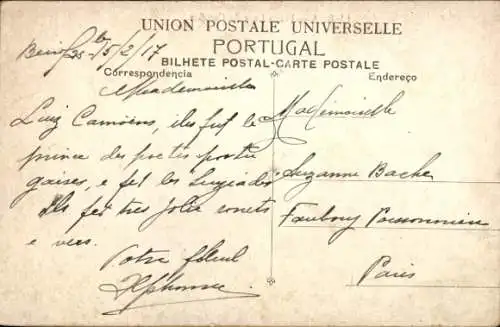 UNION POSTALE UNIVERSELLE
PORTUGAL
BILHETE POSTAL-CARTE POSTALE
Correspondencia
Endereço
5/2/17
Mademoiselle
Luiz Camöens, ils fut le
prince des poetes portu
gaises, e fet les Lusiades
Ils fet tres jolie sonets
e vers.
Votre filleul
Alphonse
Mademoiselle
Suzanne Bache
Faubourg Poissonniere
Paris